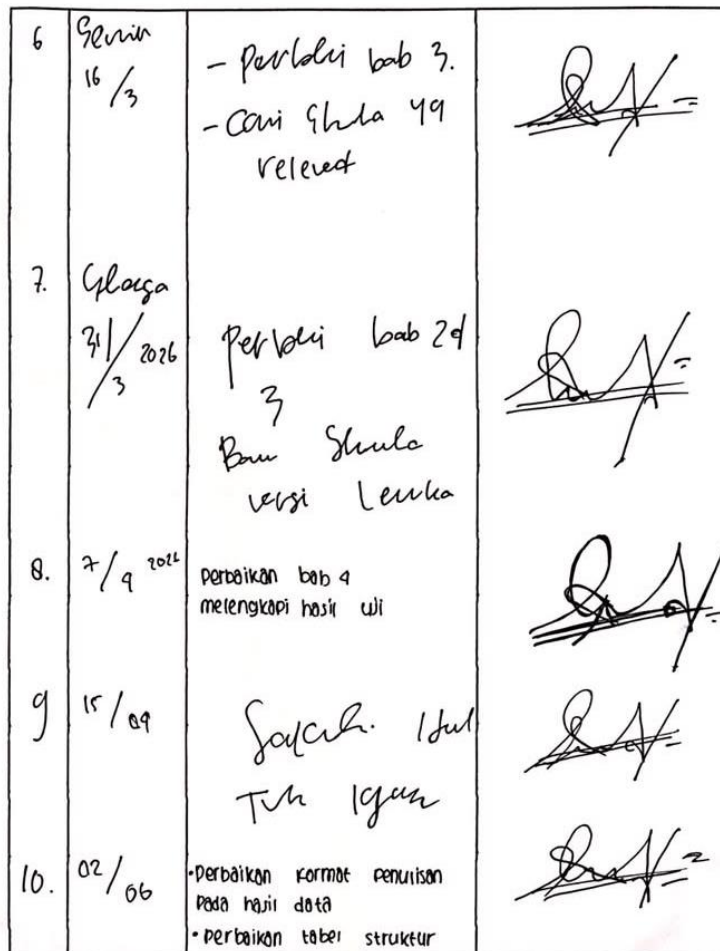 6
Senin
16/3
- Perbaiki bab 3.
- Cari Skala yg
relevant
7.
Selasa
31/3 2026
Perbaiki bab 2 d
3
Skala
versi
8.
7/4 2026
Perbaikan bab 4
melengkapi hasil uji
9
15/04
10.
02/06
• Perbaikan Format penulisan
pada hasil data
• perbaikan tabel struktur